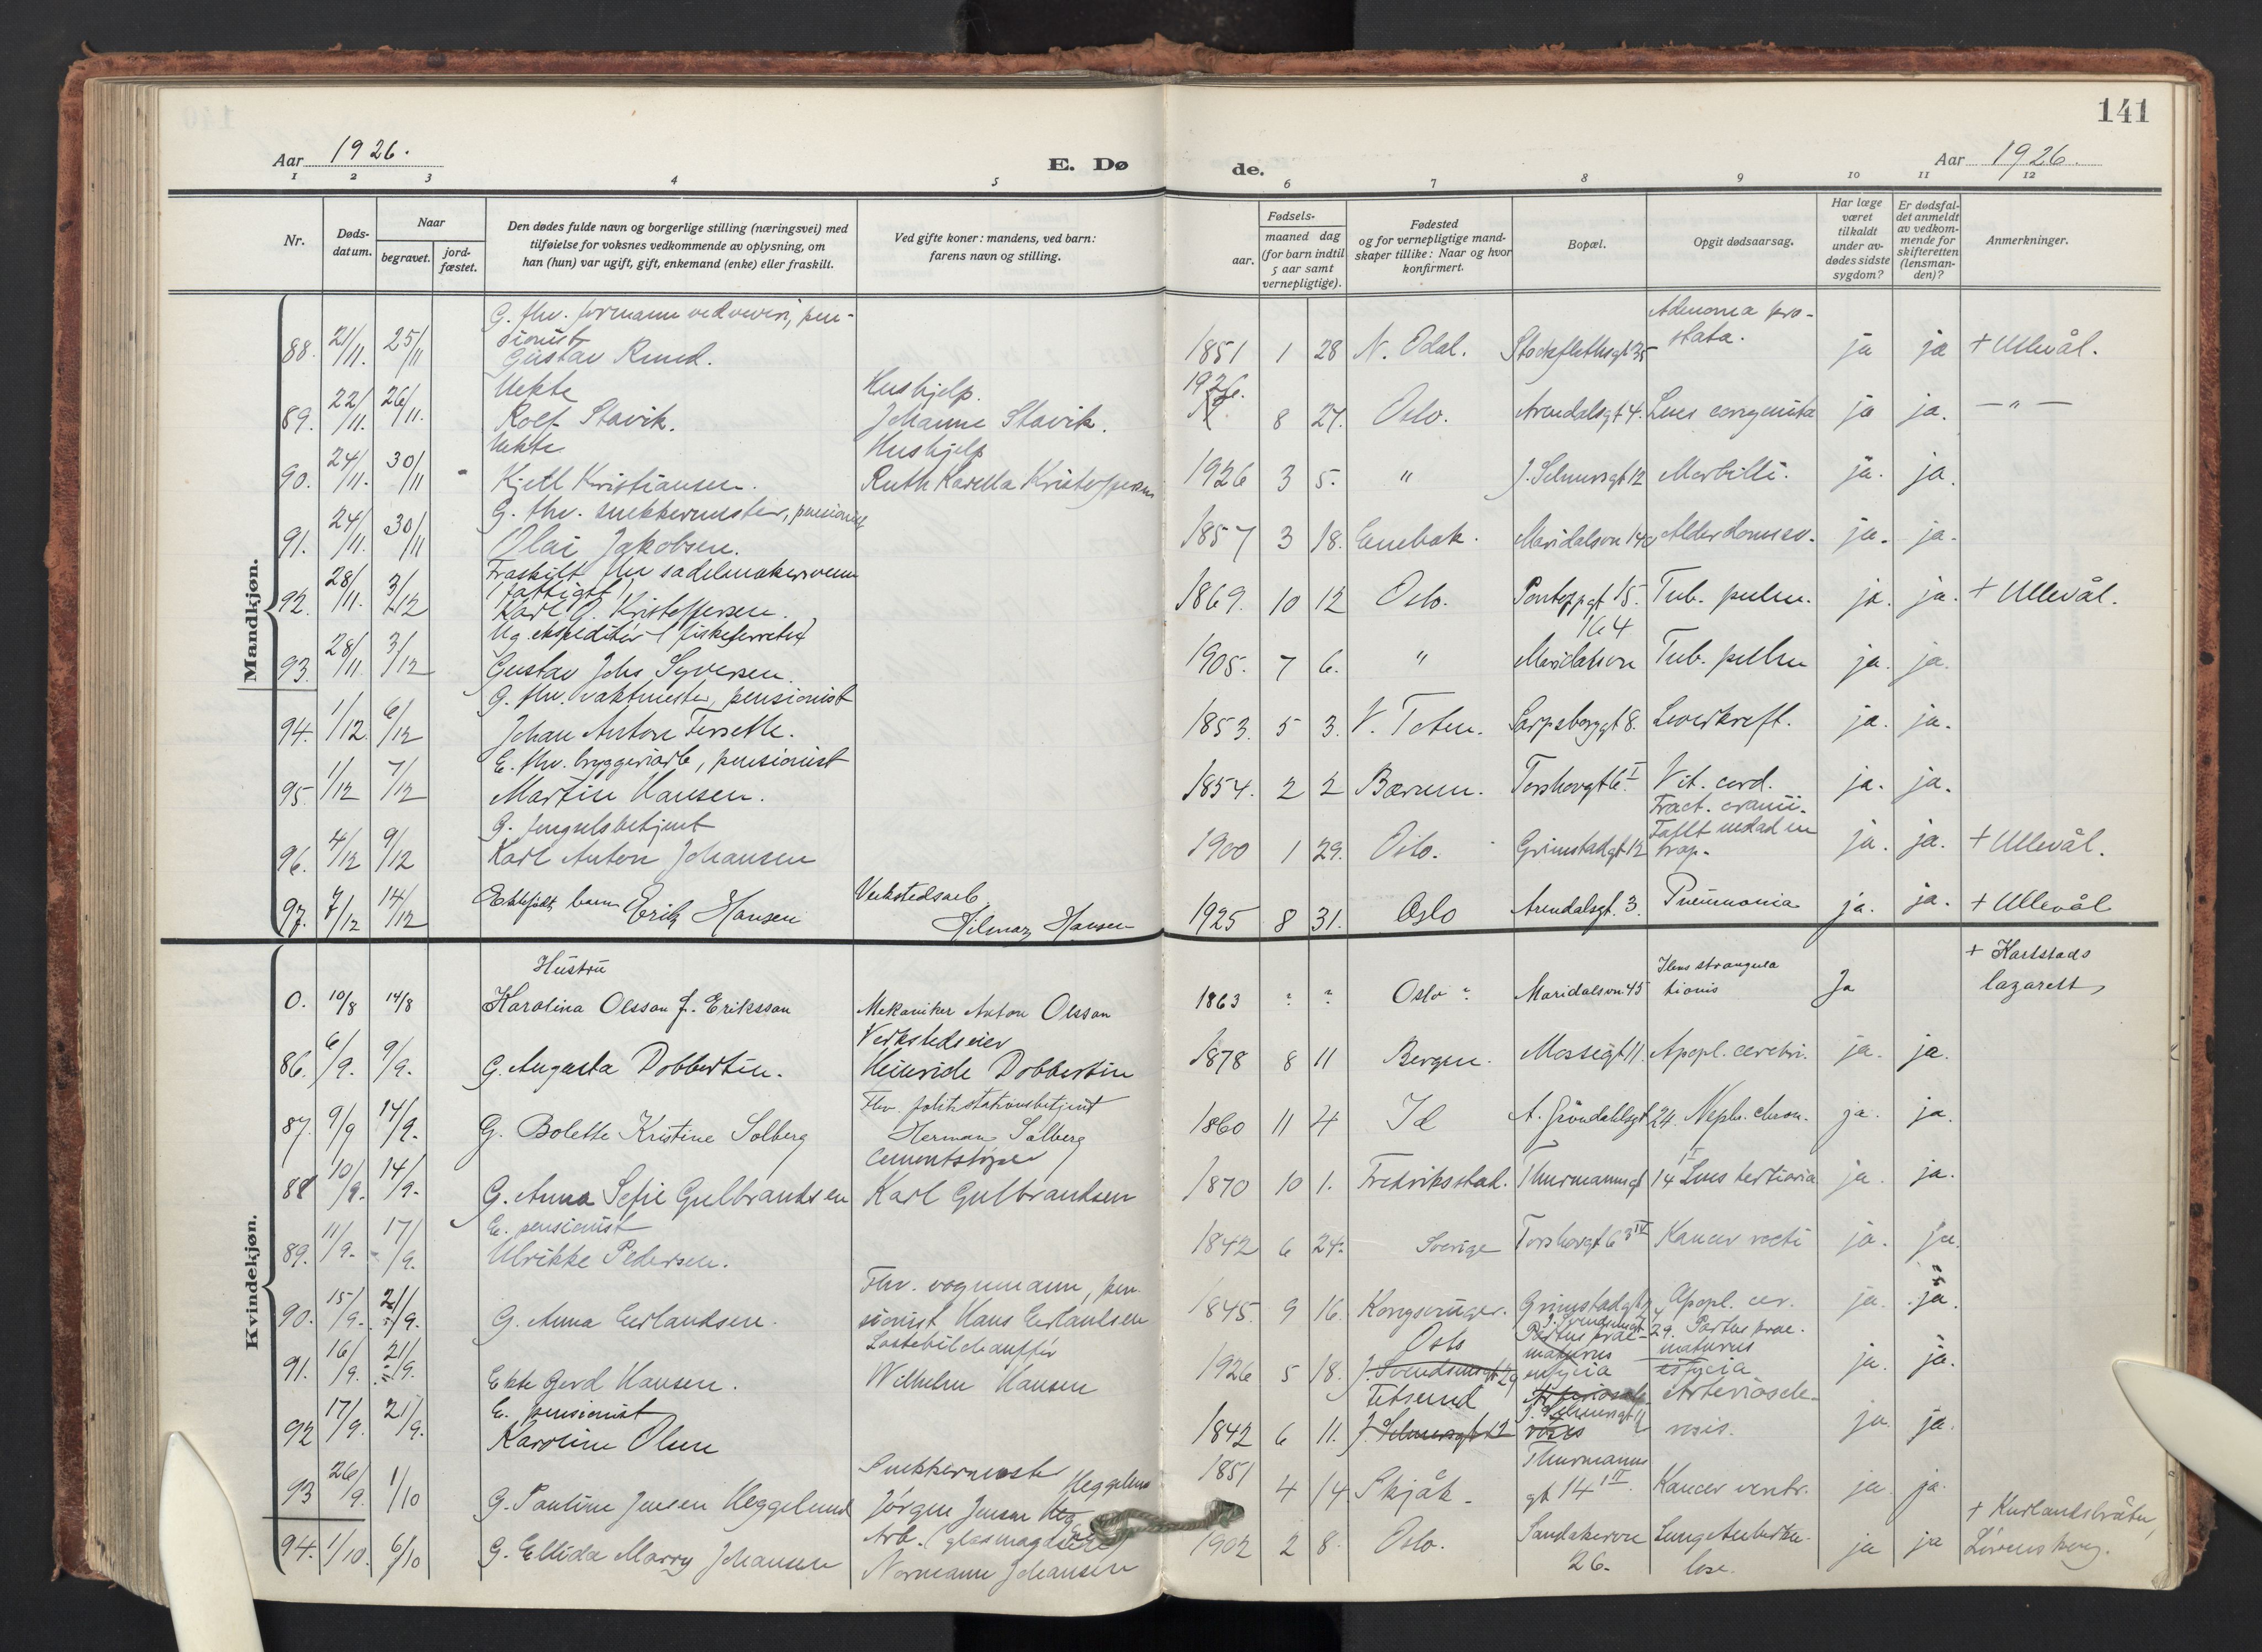 141
Aar 1926.
E. Døde.
Aar 1926.
1 2 3 4 5 6 7 8 9 10 11 12
Nr.
Døds-
datum.
Naar
begravet.
jord-
fæstet.
Den dødes fulde navn og borgerlige stilling (næringsvei) med
tilføielse for voksnes vedkommende av oplysning, om
han (hun) var ugift, gift, enkemand (enke) eller fraskilt.
Ved gifte koner: mandens, ved barn:
farens navn og stilling.
Fødsels-
aar.
maaned dag
(for barn indtil
5 aar samt
vernepligtige).
Fødested
og for vernepligtige mand-
skaper tillike: Naar og hvor
konfirmert.
Bopæl.
Opgit dødsaarsag.
Har læge
været
tilkaldt
under av-
dødes sidste
sygdom?
Er dødsfal-
det anmeldt
av vedkom-
mende for
skifteretten
(lensman-
den)?
Anmerkninger.
Mandkjøn.
G. fhv. formann ved veven, pen-
sionist Adenoma pro-
88. 21/11. 25/11 Gustav Ruud. 1851 1 28 N. Odal. Stockflethsgt 35 stata. ja ja + Ullevål.
Uekte Hushjelp. 1926.
89. 22/11. 26/11. Rolf Stavik. Johanne Stavik. 8 27. Oslo. Arendalsgt 4. Lues congenita ja ja. — " —
Uekte Hushjelp
90. 24/11. 30/11 Kjell Kristiansen. Ruth Karella 1926 3 5. " J. Selmersgt 12 Morbilli. ja. ja.
G. fhv. snekkermester, pensionist
91. 24/11. 30/11 Olai Jakobsen. 1857 3 18. Enebak. Maridalsvn 140 Alderdomssv. ja. ja.
Fraskilt fhv sadelmakersvenn
(fattigt)
92. 28/11. 3/12 Karl G. Kristoffersen. 1869. 10 12 Oslo. Pontoppgt 15. Tub. pulm. ja. ja. + Ullevål.
Ug. ekspeditör (fiskeforretn) 164
93. 28/11. 3/12 Gustav Johs Syversen. 1905. 7 6. " Maridalsvn Tub. pulm ja. ja.
G. fhv. vaktmester, pensionist
94. 1/12. 6/12 Johan Anton 1853. 5 3. V. Toten. Sarpsborggt 8. Leverkreft. ja. ja.
E. fhv. bryggeriarb, pensionist
95. 1/12 7/12 Martin Hansen. 1854. 2 2 Bærum. Torshovgt 6 I Vit. cord. ja. ja.
G. fengselsbetjent Fract. cranii.
Fallt nedad en
96. 4/12 9/12 Karl Anton Johansen 1900 1 29. Oslo. Grimstadgt 12 trap. ja. ja. + Ullevål.
Ektefødt barn Verkstedsarb
97. 7/12 14/12 Erik Hansen Hilmar Hansen 1925 8 31. Oslo Arendalsgt. 3. Pneumonia ja. ja. + Ullevål
Kvindekjøn.
Hustru Ileus strangula + Karlstads
0. 10/8 14/8 Karolina Olsson f. Eriksson Mekaniker Anton Olsson 1863 ? ? Oslo ? Maridalsvn 45 tionis Ja lazarett
Verkstedseier
86. 6/9. 9/9. G. Augusta Dobbertin. Heinrich Dobbertin 1878 8 11 Bergen. Mossegt 11. Apopl. cerebri. ja. ja.
Fhv. politistationsbetjent
87. 9/9 14/9. G. Bolette Kristine Solberg Herman Solberg 1860 11 4 Id A. Gröndahlsgt 24. Neph. chron. ja. ja.
Cementstöper
88 10/9. 14/9. G. Anna Sofie Gulbrandsen Karl Gulbrandsen 1870 10 1. Fredriksstad. Thurmannsgt 14 II Lues tertiaria ja. ja.
E. pensionist
89. 11/9. 17/9. Ulrikke Pedersen. 1842 6 24. Sverige Torshovgt 6 IV Kancer recti ja. ja.
Fhv. vognmann, pen-
90. 15/9. 21/9. G. Anna Erlandsen. sionist Hans Erlandsen 1845. 9 16. Kongsvinger. Grimstadgt Apopl. cer. ja. ja.
Lastebilchauffør Oslo J. Svendsensgt 29. Partus prae-
91. 16/9. 21/9. Ekte Gerd Hansen. Wilhelm Hansen 1926 5 18. J. Svendsensgt 29 maturus ja. ja.
E. pensionist Fetsund Arteriosele-
92 17/9. 21/9. Karoline Olsen 1842 6 11. J. Selmersgt 12 rosis. ja ja.
Snekkermester Heggelund Thurmanns
93 26/9. 1/10 G. Pauline Jensen Heggelund Jørgen Jensen 1851 4 14 Skjåk. gt 14 II. Kancer ventr. ja. ja.
Arb. Sandakervn Lungetuberku- +
94. 1/10. 6/10 G. Ellida Marry Johansen Normann Johansen 1902 2 8. Oslo. 26. lose. ja ja Lörenskog.